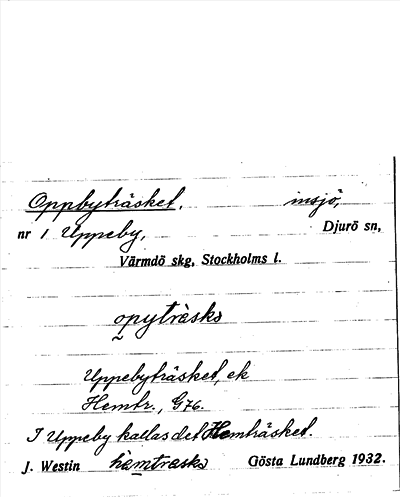 Oppbyträsket, insjö,
nr 1 Uppeby, Djurö sn,
Värmdö skg, Stockholms l.
opyträsks
Uppebyträsket, ek
Hemtr., G76.
I Uppeby kallas det Hemträsket.
J. Westin hämtrasks Gösta Lundberg 1932.